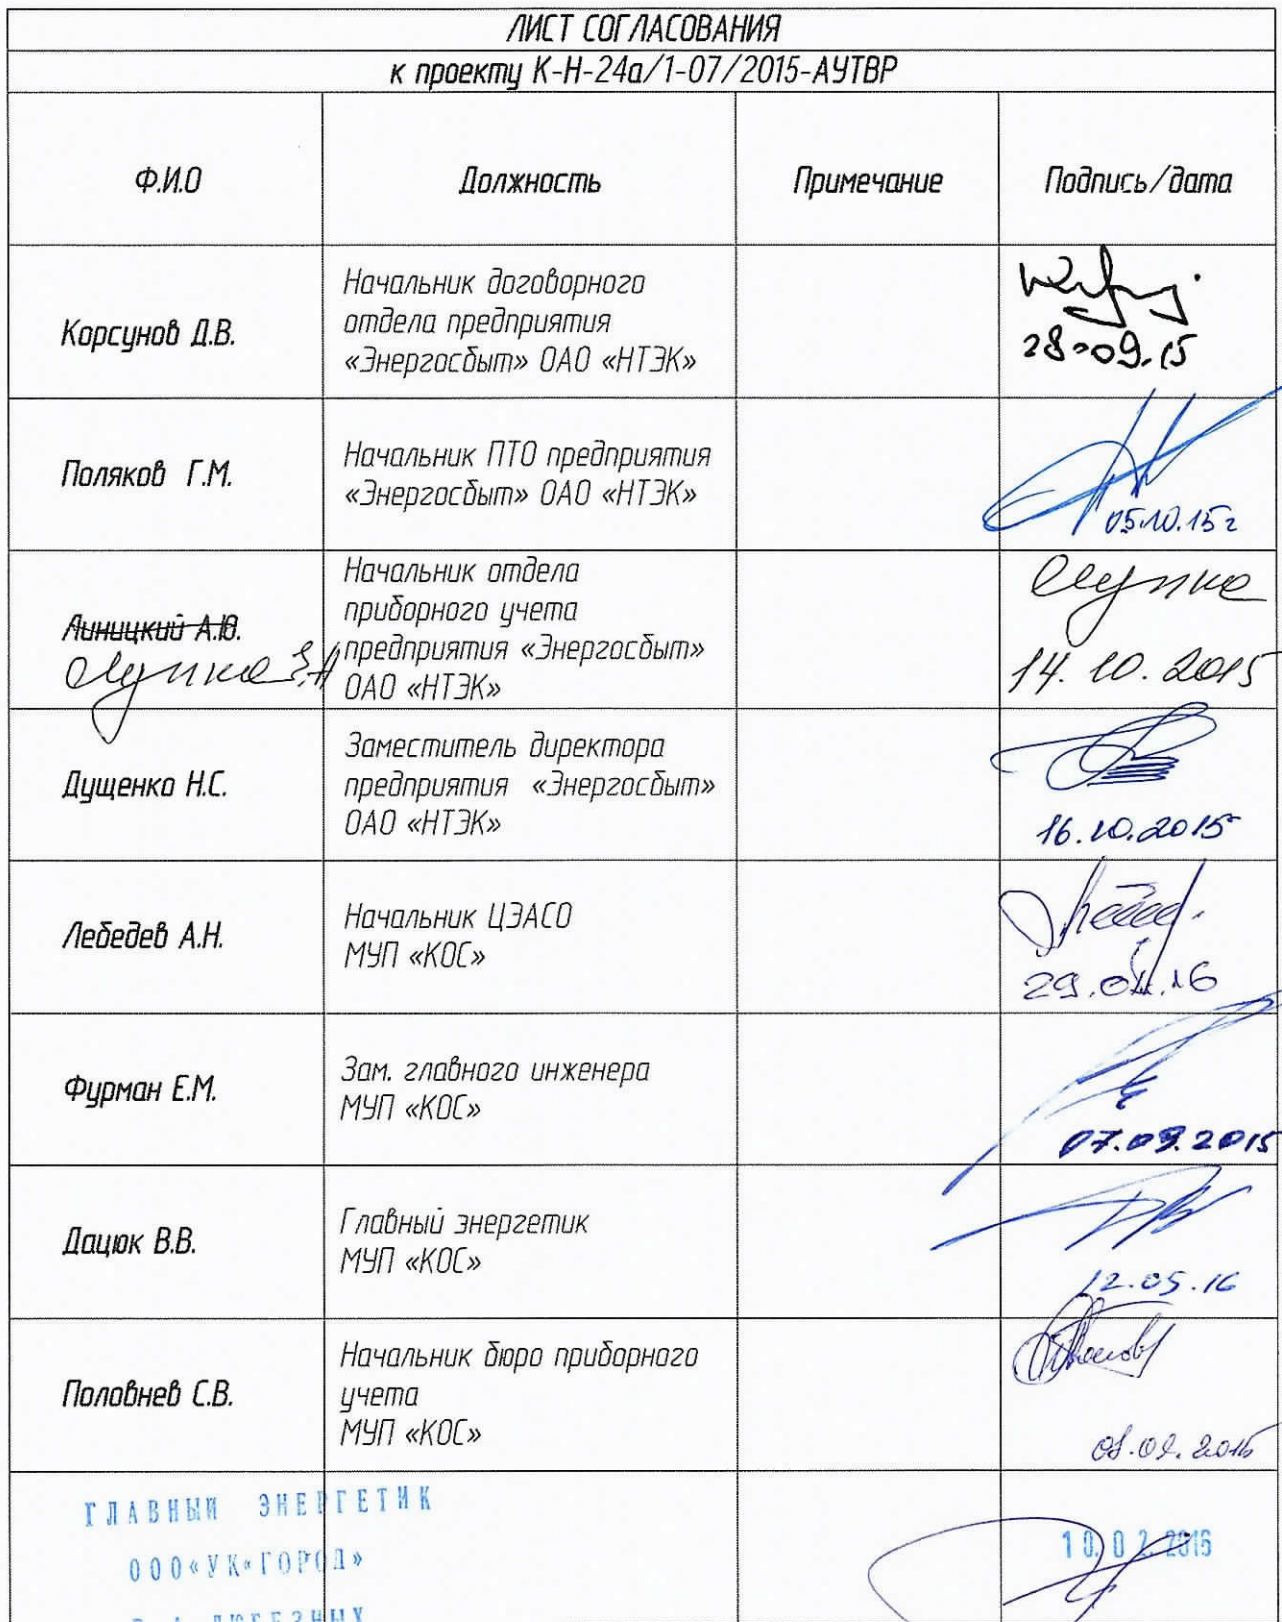 ЛИСТ СОГЛАСОВАНИЯ
к проекту К-Н-24а/1-07/2015-АУТВР
Ф.И.О Должность Примечание Подпись/дата
Корсунов Д.В.
Начальник договорного
отдела предприятия
«Энергосбыт» ОАО «НТЭК»
28.09.15
Поляков Г.М.
Начальник ПТО предприятия
«Энергосбыт» ОАО «НТЭК»
05.10.15г
Линицкий А.Ю.
Начальник отдела
приборного учета
предприятия «Энергосбыт»
ОАО «НТЭК»
14.10.2015
Дущенко Н.С.
Заместитель директора
предприятия «Энергосбыт»
ОАО «НТЭК»
16.10.2015
Лебедев А.Н.
Начальник ЦЭАСО
МУП «КОС»
Фурман Е.М.
Зам. главного инженера
МУП «КОС»
07.09.2015
Дацюк В.В.
Главный энергетик
МУП «КОС»
12.05.16
Половнев С.В.
Начальник бюро приборного
учета
МУП «КОС»
ГЛАВНЫЙ ЭНЕРГЕТИК
ООО«УК«ГОРОД»
10.02.2016